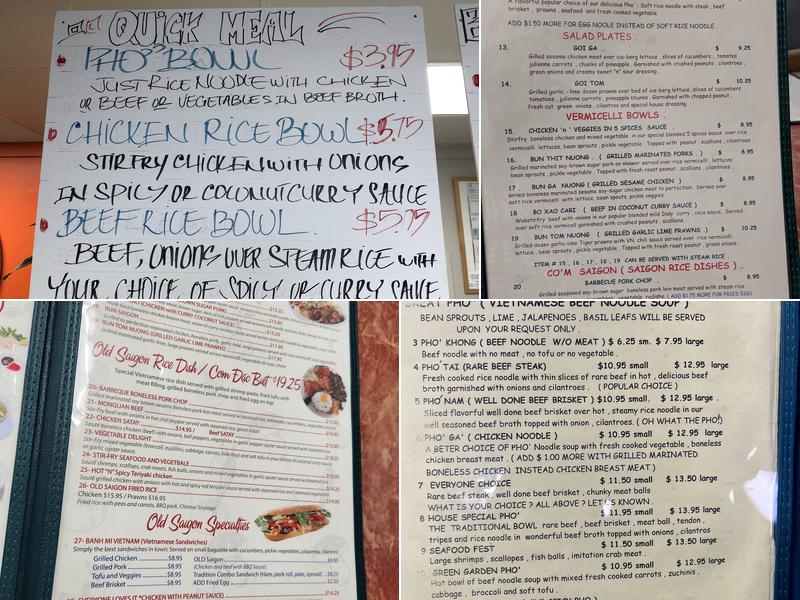 QUICK MEAL
PHO BOWL $3.95
JUST RICE NOODLE WITH CHICKEN
OR BEEF OR VEGETABLES IN BEEF BROTH.
CHICKEN RICE BOWL $5.75
STIR FRY CHICKEN WITH ONIONS
IN SPICY OR COCONUT CURRY SAUCE
BEEF RICE BOWL $5.75
BEEF, ONIONS OVER STEAM RICE WITH
YOUR CHOICE OF SPICY OR CURRY SAUCE
A flavorful popular choice of our delicious Pho : Soft rice noodle with steak , beef
brisket , prawns , seafood and fresh cooked vegetable
ADD $1.50 MORE FOR EGG NOOLE INSTEAD OF SOFT RICE NOODLE .
SALAD PLATES .
13. GOI GA . $ 9.25
Grilled sesame chicken meat over ice-berg lettuce , slices of cucumbers , tomatoes
julienne carrots , chunks of pineapple . Garnished with crushed peanuts , cilantroes ,
green onions and creamy sweet "n" sour dressing
14. GOI TOM . $ 10.25
Grilled garlic - lime dozen prawns over bed of ice-berg lettuce, slices of cucumbers
tomatoes , julienne carrots , pineapple chunks . Garnished with chopped peanut ,
fresh cut green onions , cilantros and special house dressing
VERMICELLI BOWLS .
15. CHICKEN 'n ' VEGGIES IN 5 SPICES SAUCE . $ 8.95
Stirfry boneless chicken and mixed vegetable in our special blended 5 spices sauce over rice
vermicelli lettuces, bean sprouts , pickle vegetable . Topped with peanut , scallions , cilantroes
16. BUN THIT NUONG . ( GRILLED MARINATED PORKS ) . $ 8.95
Grilled marinated soy-brown sugar pork on skewer served over rice vermicelli , lettuces
bean sprouts , pickle vegetable . Topped with fresh roast peanut , scallions , cilantroes
17 . BUN GA NUONG ( GRILLED SESAME CHICKEN ) $ 8.95
Grilled boneless marinated sesame soy-sugar chicken meat to perfection . Served over
soft rice vermicelli with lettuce, bean sprouts, pickle veggies
18 BO XAO CARI . ( BEEF IN COCONUT CURRY SAUCE ) $ 8.95
Wokstirfry beef with onions in our popular blended mild Indy curry , coco sauce . Served
over soft rice vermicelli garnished with crushed peanuts , scallions
19 BUN TOM NUONG ( GRILLED GARLIC LIME PRAWNS ) . $ 10.25
Grilled dozen garlic-lime Tiger prawns with VN. chili sauce served over rice vermicelli,
lettuce , bean sprouts , pickle vegetable . Topped with fresh roast peanut , green onions
ITEM # 15 , 16 , 17 , 18 , 19 CAN BE SERVED WITH STEAM RICE
CO'M SAIGON ( SAIGON RICE DISHES ) .
20 BARBECUE PORK CHOP . $ 8.95
Grilled seasoned soy-brown sugar boneless pork loin meat served over steam rice
( ADD $1.75 MORE FOR FRIED EGG)
(CHICKEN with COCONUT CURRY SAUCE) $15.25
BUN SAIGON
BUN TOM NUONG (GRILLED GARLIC LIME PRAWNS)
Old Saigon Rice Dish / Com Dac Biet $19.25
Special Vietnamese rice dish served with grilled shrimp paste, fried tofu with
meat filling, grilled boneless pork chop and fried egg on top
20- BARBEQUE BONELESS PORK CHOP
21- MONGLIAN BEEF
22- CHICKEN SATAY $14.95 / Beef SATAY
23- VEGETABLE DELIGHT
24- STIR-FRY SEAFOOD AND VEGETBALE
25- HOT "N" Spicy Teriyaki chicken
26- OLD SAIGON FRIED RICE
Chicken $15.95 / Prawns $16.95
Fried rice with peas and carrots, BBQ pork, Chinese Sausage
Old Saigon Specialties
27- BANH MI VIETNAM (Vietnamese Sandwiches)
Simply the best sandwiches in town: Served on small baguette with cucumbers, pickle vegetables, jalapenos, cilantro
Grilled Chicken $8.95 OLD Saigon $9.95
Grilled Pork $8.95 (Chicken and beef with BBQ Sauce)
Tofu and Veggies $8.95 Tradition Combo Sandwich (Ham, pork roll, pate, spread) $8.25
Beef Brisket $8.95 ADD Fried Egg $2.25
EVERYONE LOVES IT "CHICKEN WITH PEANUT SAUCE) $14.25
GREAT PHO' ( VIETNAMESE BEEF NOODLE SOUP )
BEAN SPROUTS , LIME , JALAPENOES , BASIL LEAFS WILL BE SERVED
UPON YOUR REQUEST ONLY .
3 PHO' KHONG ( BEEF NOODLE W/O MEAT ) $ 6.25 sm. $ 7.95 large
Beef noodle with no meat , no tofu or no vegetable .
4 PHO' TAI (RARE BEEF STEAK) $10.95 small $ 12.95 large
Fresh cooked rice noodle with thin slices of rare beef in hot , delicious beef
broth garnished with onions and cilantros . ( POPULAR CHOICE )
5 PHO' NAM ( WELL DONE BEEF BRISKET ) $10.95 small. $ 12.95 large .
Sliced flavorful well done beef brisket over hot , steamy rice noodle in our
well seasoned beef broth topped with onion , cilantroes. ( OH WHAT THE PHO!)
6 PHO' GA' ( CHICKEN NOODLE ) $ 10.95 small $ 12.95 large
A BETER CHOICE OF PHO' Noodle soup with fresh cooked vegetable , boneless
chicken breast meat . ( ADD $ 1.00 MORE WITH GRILLED MARINATED
BONELESS CHICKEN INSTEAD CHICKEN BREAST MEAT )
7 EVERYONE CHOICE $ 11.50 small $ 13.50 large
Rare beef steak , well done beef brisket , chunky meat balls
WHAT IS YOUR CHOICE ? ALL ABOVE ? LET US KNOWN .
8 HOUSE SPECIAL PHO' $ 11.95 small $ 13.95 large
THE TRADITIONAL BOWL rare beef , beef brisket , meat ball , tendon ,
tripes and rice noodle in wonderful beef broth topped with onions , cilantros
9 SEAFOOD FEST $ 11.50 small $ 13.50 large
Large shrimps , scallopes , fish balls , imitation crab meat .
10 GREEN GARDEN PHO' $ 10.95 small $ 12.95 large
Hot bowl of beef noodle soup with mixed fresh cooked carrots , zuchinis ,
cabbage , broccoli and soft tofu .